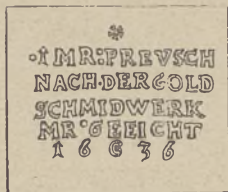 ·1 MR:PREVSCH
NACH·DERGOLD
SCHMIDWERK
MR°GEEICHT
1 6 3 6